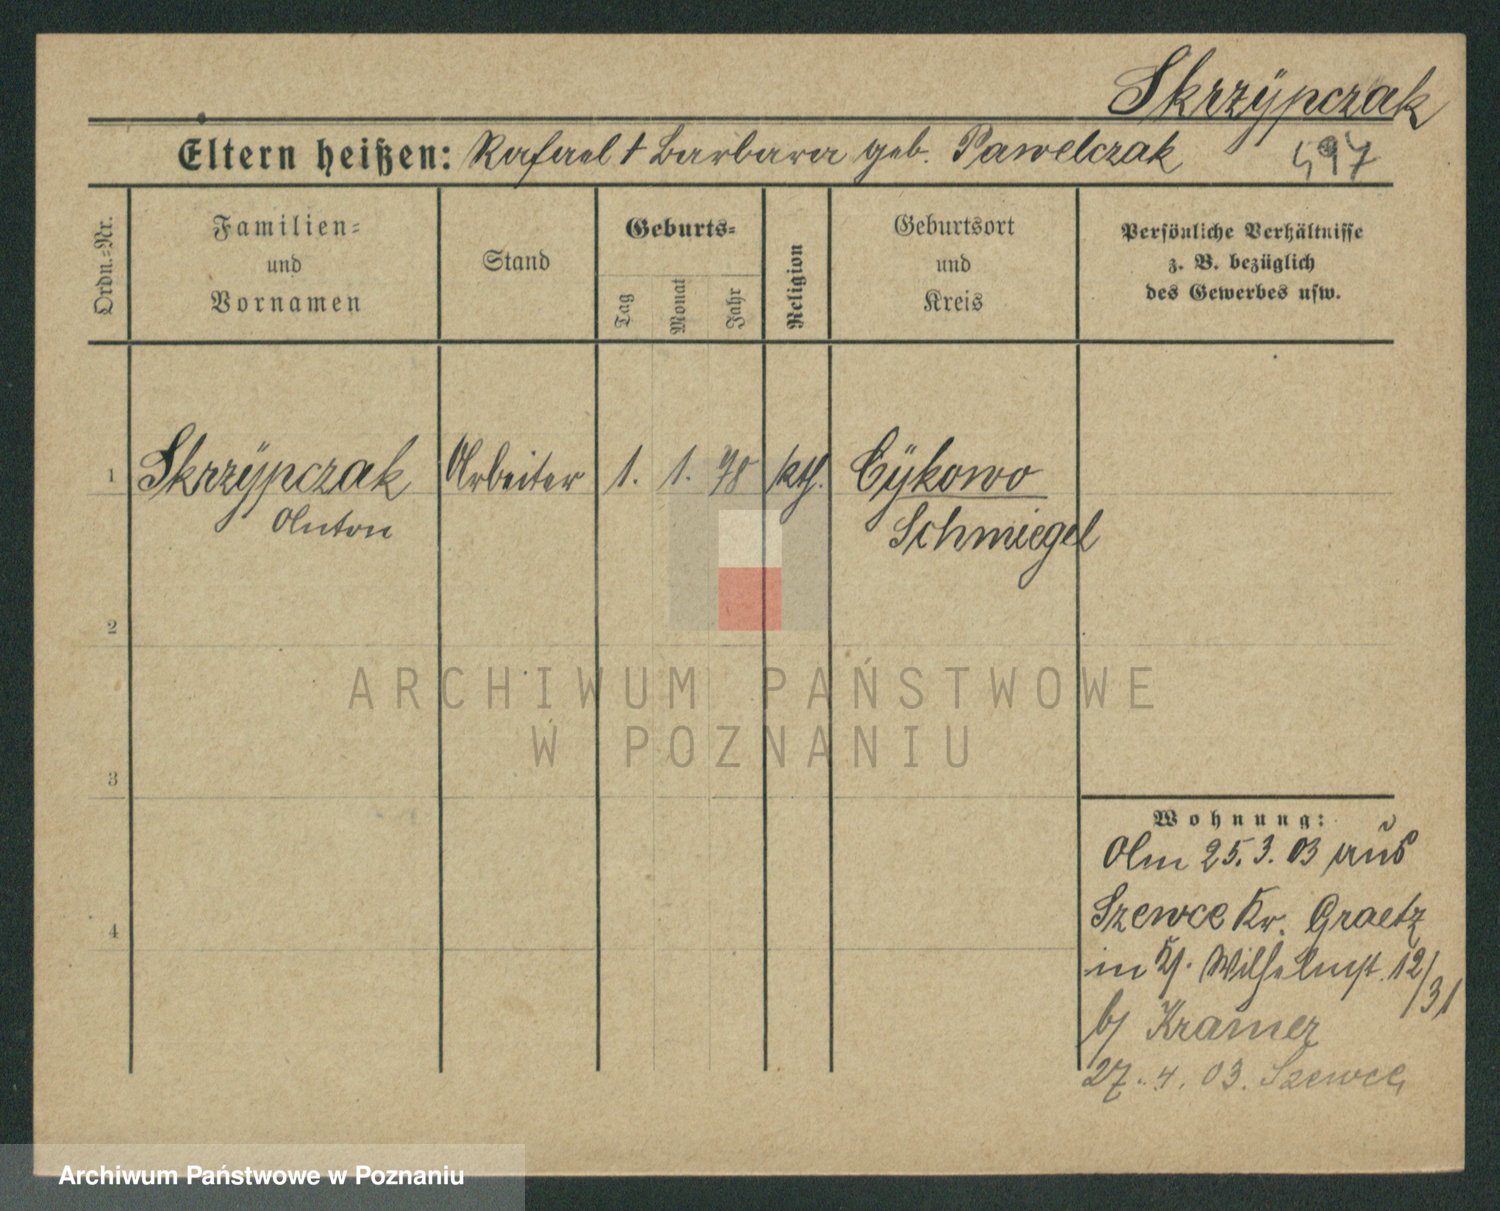 Skrzÿpczak
Eltern heißen: Rafael † Barbara geb. Pawelczak 497
Ordn.=Nr.
Familien=
und
Vornamen
Stand
Geburts=
Tag
Monat
Jahr
Religion
Geburtsort
und
Kreis
Persönliche Verhältnisse
z. B. bezüglich
des Gewerbes usw.
1 Skrzÿpczak Arbeiter 1. 1. 78 kth. Cÿkowo
Anton Schmiegel
2
ARCHIWUM PAŃSTWOWE
W POZNANIU
3
Wohnung:
Am 25.3.03 aus
Szewce Kr. Graetz
4
in Wilhelmst. 12/31
b/ Kramer
27.4.03. Szewce
Archiwum Państwowe w Poznaniu